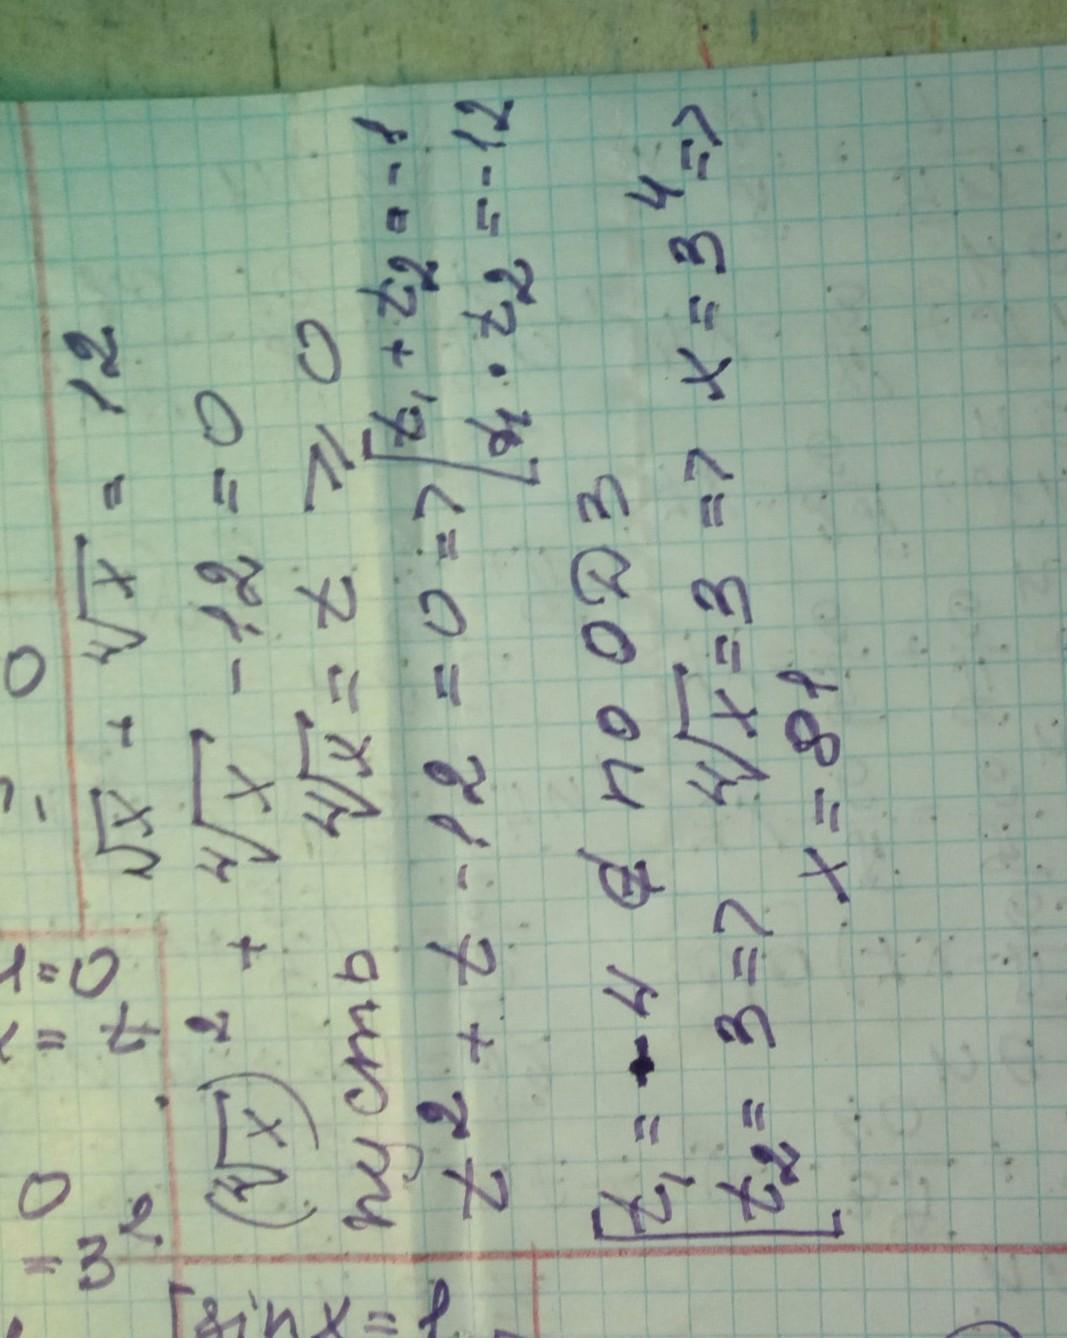 √x + ⁴√x = 12
(⁴√x)² + ⁴√x - 12 = 0
пусть ⁴√x = t ⩾ 0
t² + t - 12 = 0 => [t₁ + t₂ = -1
t₁ · t₂ = -12
[t₁ = -4 ∉ по ОДЗ
t₂ = 3 => ⁴√x = 3 => x = 3⁴ =>
x = 81
= 0
= t
0
= 3
[sin x = 1
0